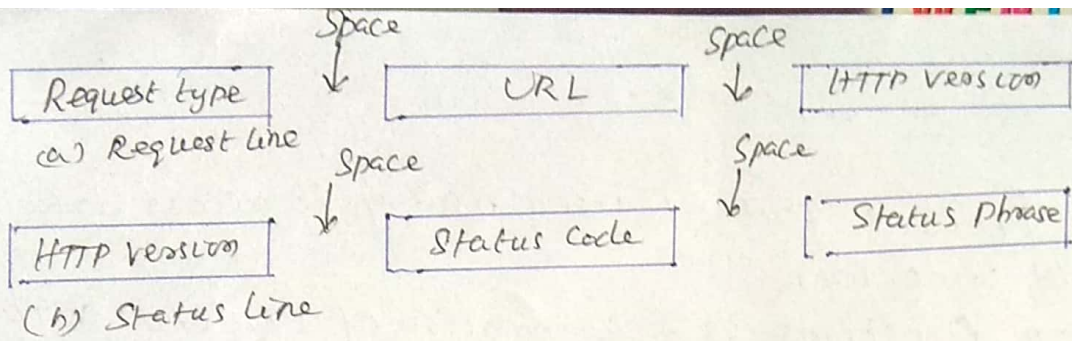 Space Space
Request type URL HTTP version
(a) Request line
Space Space
HTTP version Status Code Status Phrase
(b) Status line